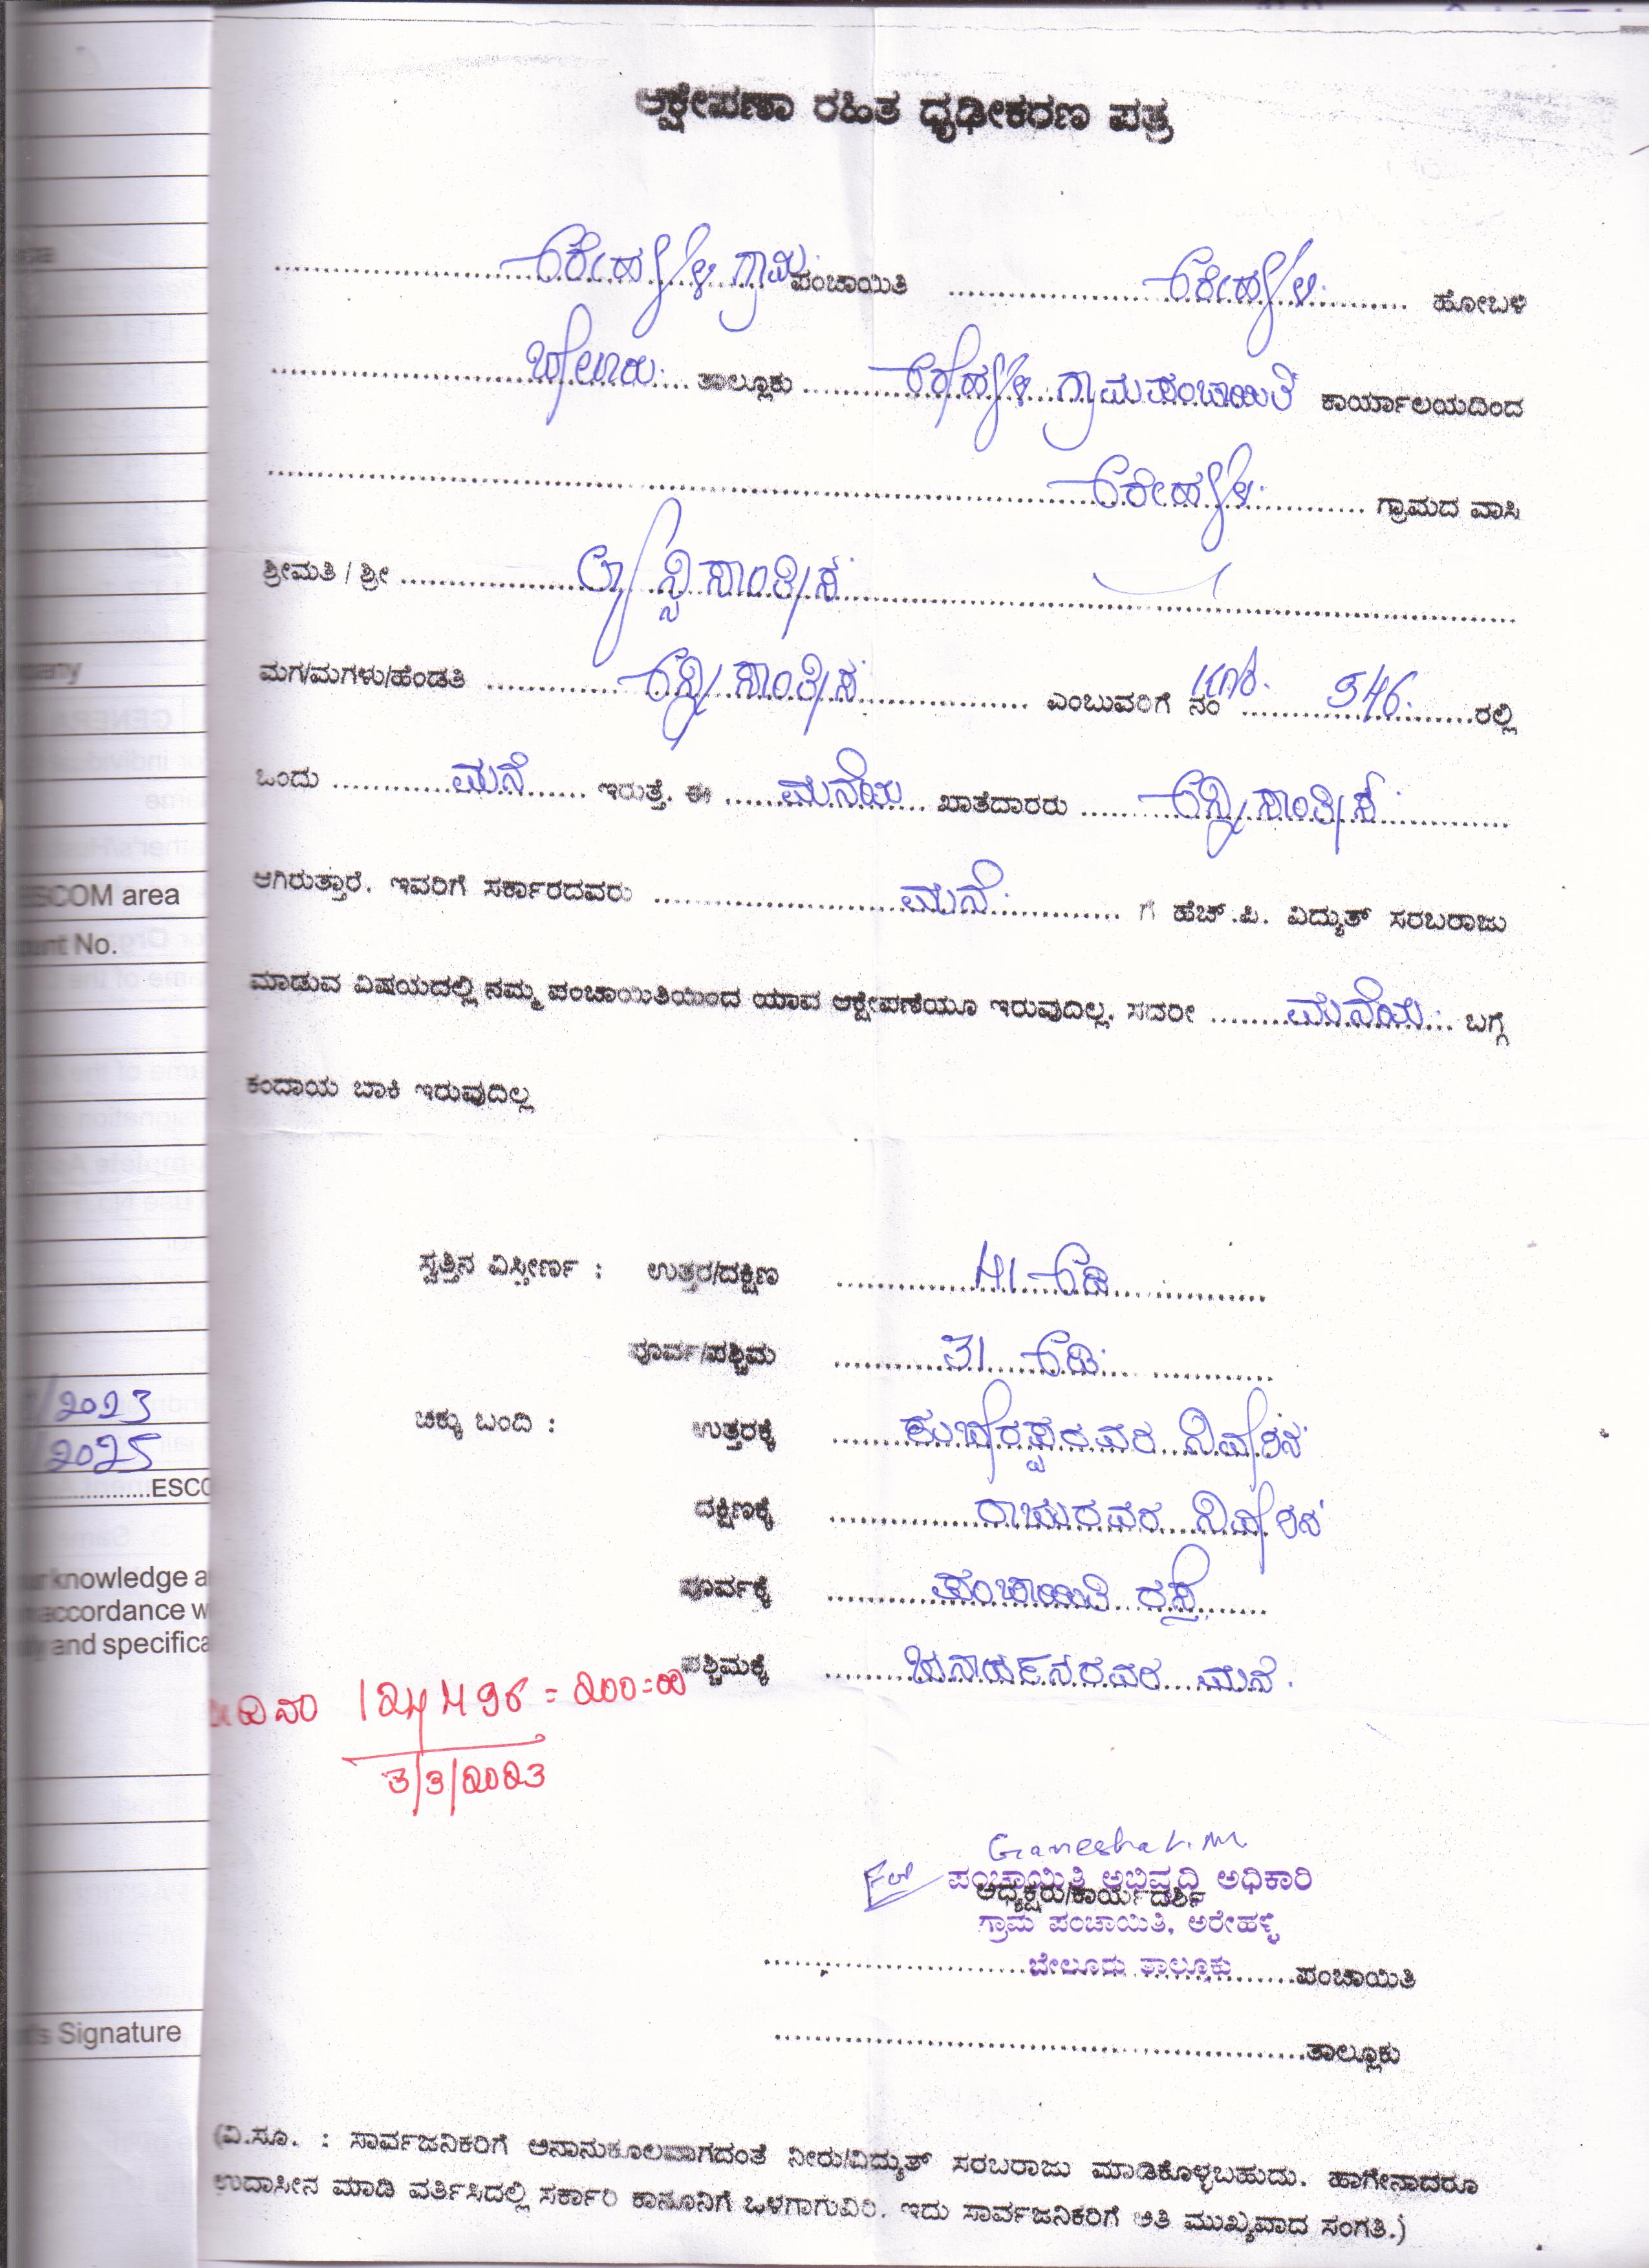 ಆಕ್ಷೇಪಣಾ ರಹಿತ ಧೃಢೀಕರಣ ಪತ್ರ
ಅರೇಹಳ್ಳಿ ಗ್ರಾಮ ಪಂಚಾಯಿತಿ ಅರೇಹಳ್ಳಿ ಹೋಬಳಿ
ಬೇಲೂರು ತಾಲ್ಲೂಕು ಅರೇಹಳ್ಳಿ ಗ್ರಾಮ ಪಂಚಾಯಿತಿ ಕಾರ್ಯಾಲಯದಿಂದ
ಅರೇಹಳ್ಳಿ ಗ್ರಾಮದ ವಾಸಿ
ಶ್ರೀಮತಿ / ಶ್ರೀ
ಮಗ/ಮಗಳು/ಹೆಂಡತಿ ಎಂಬುವರಿಗೆ ನಂ 546. ರಲ್ಲಿ
ಒಂದು ಮನೆ ಇರುತ್ತೆ. ಈ ಮನೆಯ ಖಾತೆದಾರರು
ಆಗಿರುತ್ತಾರೆ. ಇವರಿಗೆ ಸರ್ಕಾರದವರು ಮನೆ ಗೆ ಹೆಚ್.ಪಿ. ವಿದ್ಯುತ್ ಸರಬರಾಜು
ಮಾಡುವ ವಿಷಯದಲ್ಲಿ ನಮ್ಮ ಪಂಚಾಯಿತಿಯಿಂದ ಯಾವ ಆಕ್ಷೇಪಣೆಯೂ ಇರುವುದಿಲ್ಲ. ಸದರೀ ಮನೆಯ ಬಗ್ಗೆ
ಕಂದಾಯ ಬಾಕಿ ಇರುವುದಿಲ್ಲ
ಸ್ವತ್ತಿನ ವಿಸ್ತೀರ್ಣ : ಉತ್ತರ/ದಕ್ಷಿಣ 41 ಅಡಿ
ಪೂರ್ವ/ಪಶ್ಚಿಮ 31 ಅಡಿ
ಚಕ್ಕು ಬಂದಿ : ಉತ್ತರಕ್ಕೆ ನಿವೇಶನ
ದಕ್ಷಿಣಕ್ಕೆ ರಾಜುರವರ ನಿವೇಶನ
ಪೂರ್ವಕ್ಕೆ ಪಂಚಾಯಿತಿ ರಸ್ತೆ
ಪಶ್ಚಿಮಕ್ಕೆ ಜನಾರ್ಧನರವರ ಮನೆ.
124496 = 200=00
3/3/2023
Ganesha L.M
For ಪಂಚಾಯಿತಿ ಅಭಿವೃದ್ಧಿ ಅಧಿಕಾರಿ
ಅಧ್ಯಕ್ಷರು/ಕಾರ್ಯದರ್ಶಿ
ಗ್ರಾಮ ಪಂಚಾಯಿತಿ, ಅರೇಹಳ್ಳಿ
ಬೇಲೂರು ತಾಲ್ಲೂಕು ಪಂಚಾಯಿತಿ
ತಾಲ್ಲೂಕು
(ವಿ.ಸೂ. : ಸಾರ್ವಜನಿಕರಿಗೆ ಅನಾನುಕೂಲವಾಗದಂತೆ ನೀರು/ವಿದ್ಯುತ್ ಸರಬರಾಜು ಮಾಡಿಕೊಳ್ಳಬಹುದು. ಹಾಗೇನಾದರೂ
ಉದಾಸೀನ ಮಾಡಿ ವರ್ತಿಸಿದಲ್ಲಿ ಸರ್ಕಾರಿ ಕಾನೂನಿಗೆ ಒಳಗಾಗುವಿರಿ. ಇದು ಸಾರ್ವಜನಿಕರಿಗೆ ಅತಿ ಮುಖ್ಯವಾದ ಸಂಗತಿ.)
ESCOM area
No.
/2023
/2025
ESCO
knowledge a
accordance w
and specifica
Signature